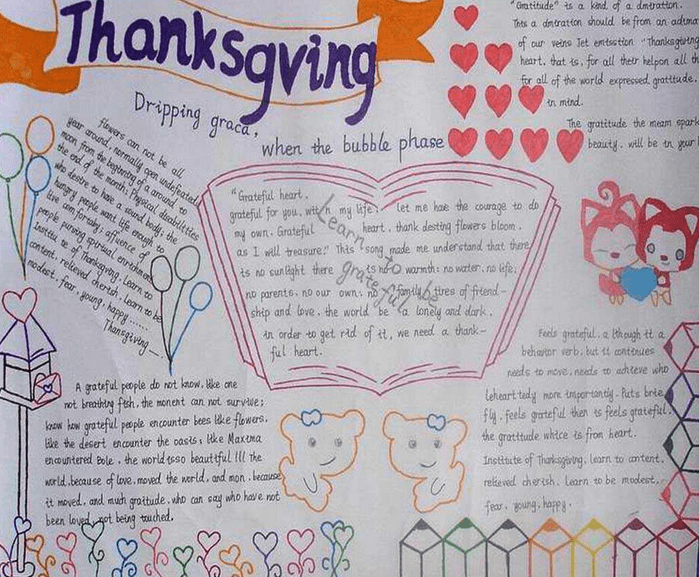 Thanksgving
Dripping graca,
when the bubble phase
"Gratitude" is a kind of a dmtration.
This a dmtration should be from an
of our veins Jet emitsstion "Thanksgiving
heart, that is, for all their helpon all th
for all of the world expressed gratitude,
in mind.
The gratitude the meam spark
beauty, will be in year
flowers can not be all
year around, normally open undefeated,
moon from the beginning of a around to
the end of the month; Physical disabilities
who desire to have a sound body; the
hungry people want life enough to
live comfortably; affluence of
people pursing spiritual enrichment
Institu te of Thanksgiving, learn to
content, relieved cherish, learn to be
modest, fear, young, happy......
Thanksgiving
"Grateful heart,
grateful for you, with n my life, let me hae the courage to do
my own. Grateful heart, thank desting flowers bloom,
as I will treasure." This song made me understand that there
is no sunlight there is no warmth; no water, no life;
no parents, no our own; no family, tires of friend-
ship and love, the world be a lonely and dark.
in order to get rid of it, we need a thank-
ful heart.
Learn to be grateful
A grateful people do not know, like one
not breathing fish, the monent can not survive;
know how grateful people encounter bees like flowers,
like the desert encounter the oasts, like Maxima
encountered Bole, the world isso beautiful !!! the
world, because of love, moved the world, and mon, because
it moved, and much graitude, who can say who have not
been loved, not being touched,
Feels grateful, a lthough it a
behavior verb, but it continues
needs to move, needs to achieve who
leheart tedly more importantly, Puts brie
fly, feels grateful then is feels grateful,
the gratitude whice is from heart.
Institute of Thanksgiving, learn to content,
relieved cherish, learn to be modest,
fear, young, happy.